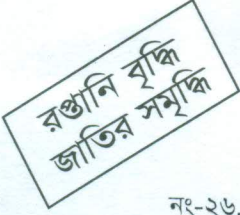 রপ্তানি বৃদ্ধি
জাতির সমৃদ্ধি
নং-২৬